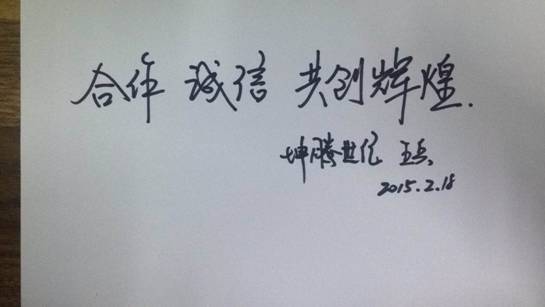 合作 诚信 共创辉煌.
坤腾世纪 王兵
2015.2.18